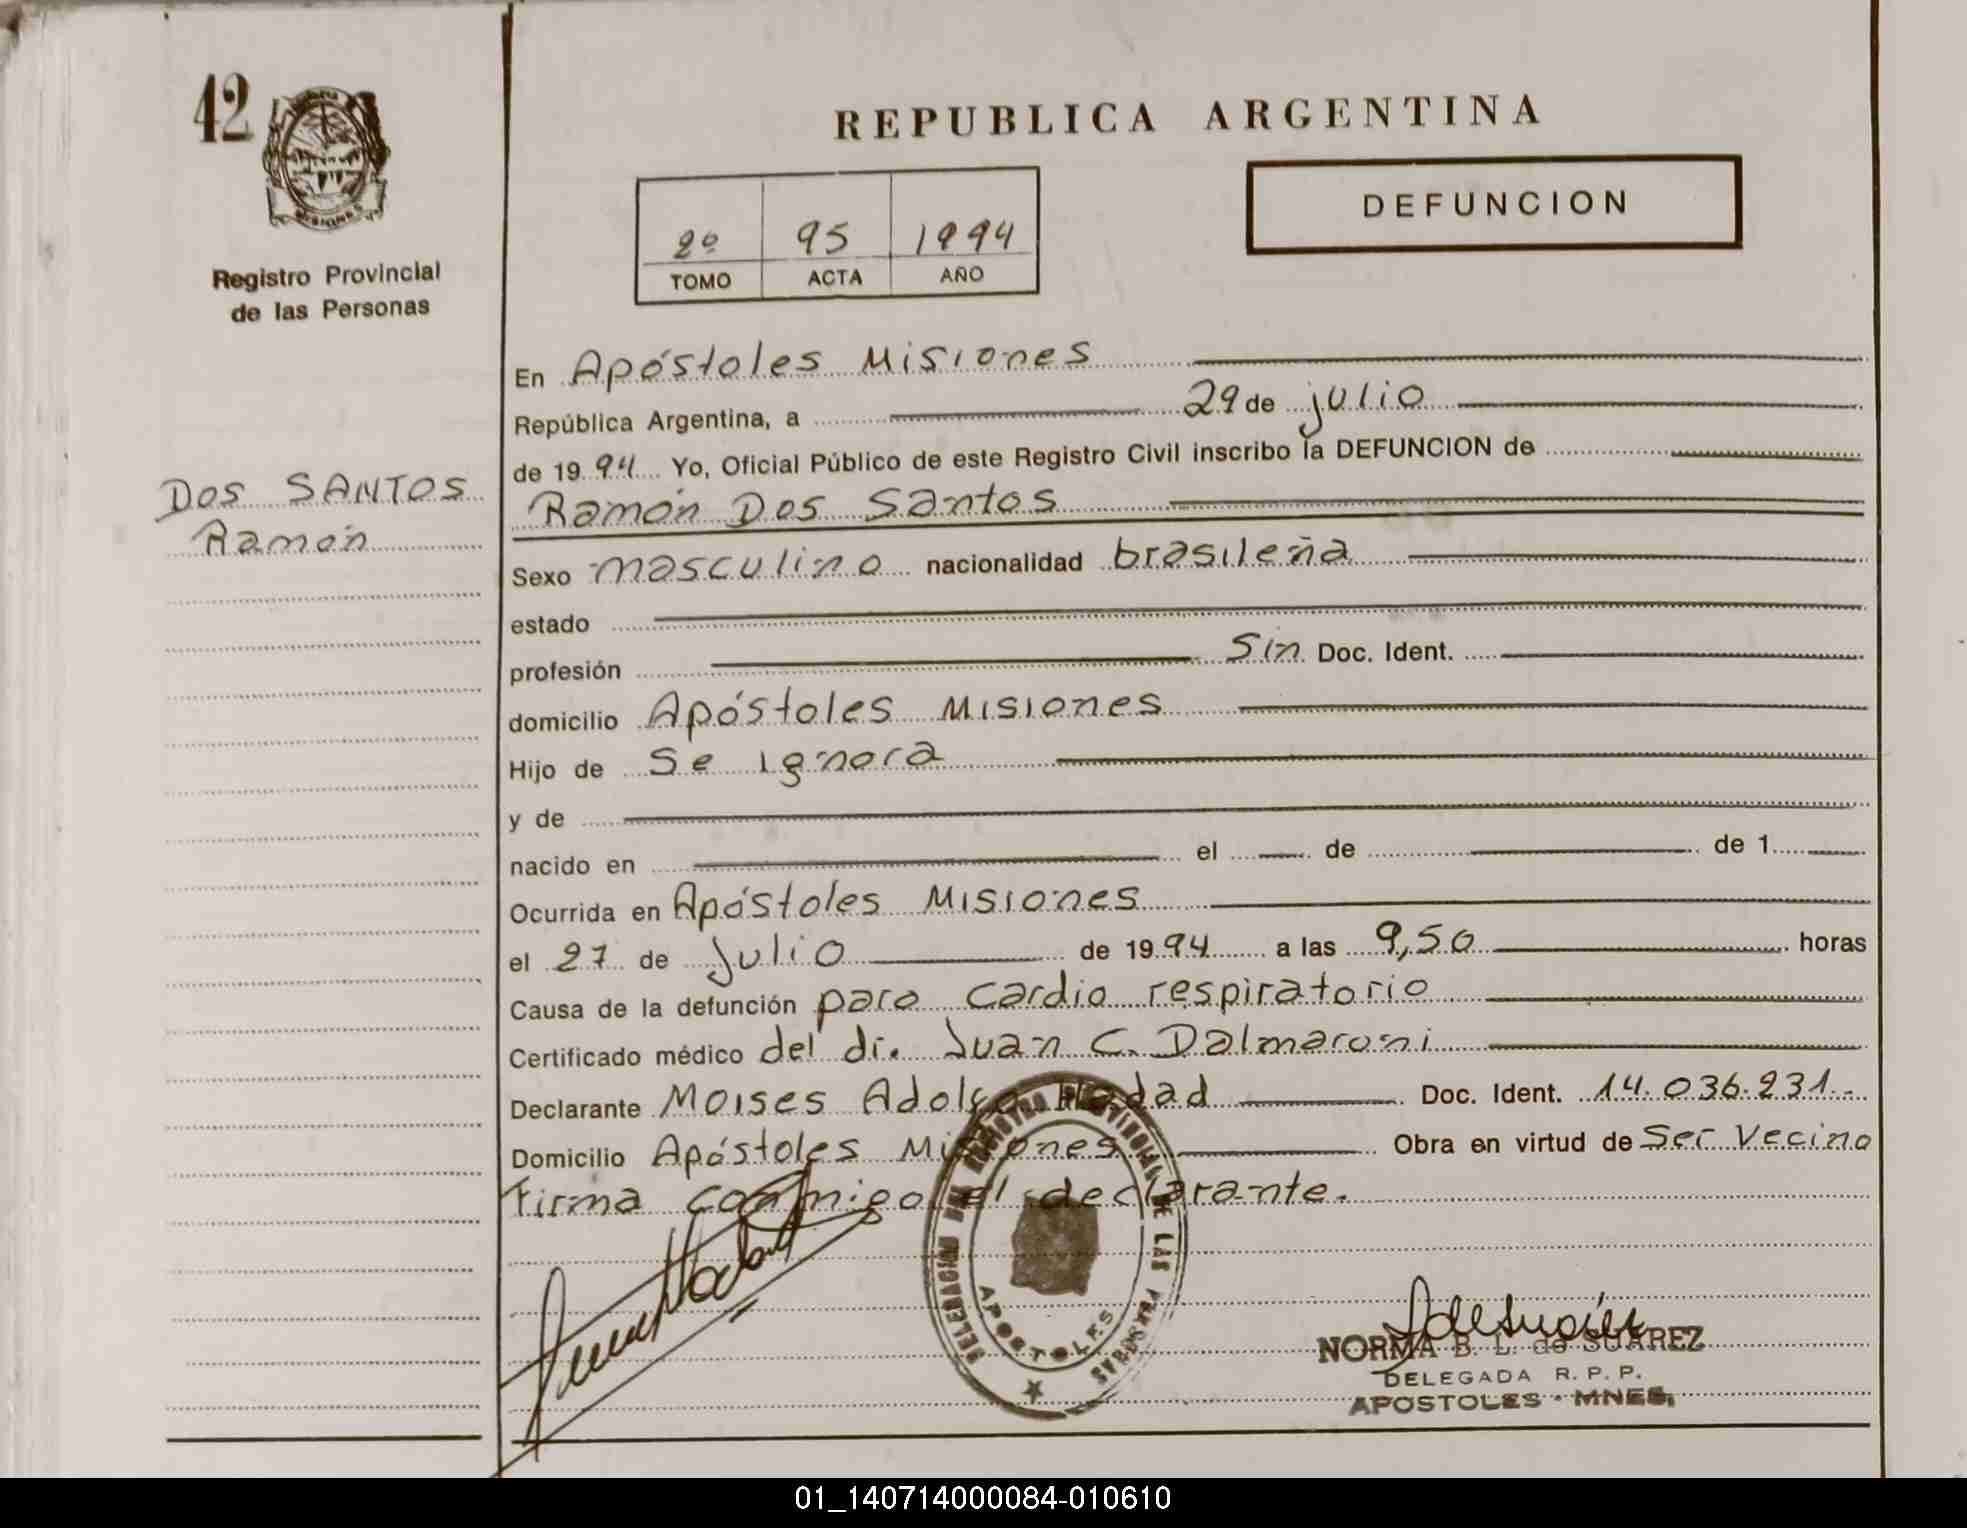 42
REPUBLICA ARGENTINA
DEFUNCION
2º 95 1994
TOMO ACTA AÑO
Registro Provincial
de las Personas
DOS SANTOS
Ramón
En Apóstoles Misiones
República Argentina, a 29 de julio
de 1994 Yo, Oficial Público de este Registro Civil inscribo la DEFUNCION de
Ramón Dos Santos
Sexo masculino nacionalidad brasileña
estado
profesión Sin Doc. Ident.
domicilio Apóstoles Misiones
Hijo de Se ignora
y de
nacido en el de de 1
Ocurrida en Apóstoles Misiones
el 27 de Julio de 1994 a las 9,50 horas
Causa de la defunción paro cardio respiratorio
Certificado médico del dr. Juan C. Dalmaroni
Declarante Moises Adolfo Hadad Doc. Ident. 14.036.231.-
Domicilio Apóstoles Misiones Obra en virtud de Ser Vecino
Firma conmigo el declarante.
DELEGACION DEL REGISTRO PROVINCIAL DE LAS PERSONAS
APOSTOLES
NORMA B. L. de SUAREZ
DELEGADA R. P. P.
APOSTOLES - MNES.
01_140714000084-010610